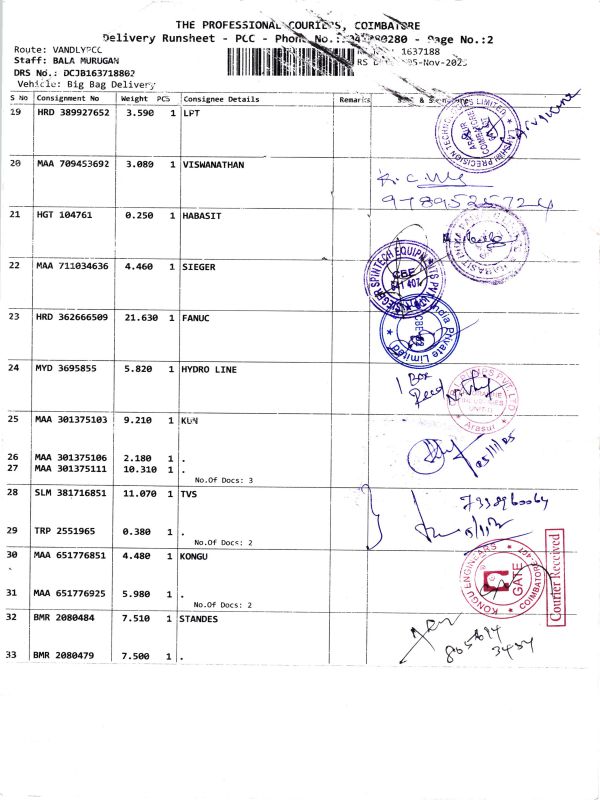 THE PROFESSIONAL COURIERS, COIMBATORE
Delivery Runsheet - PCC - Phone No.: 80280 - Page No.:2
Route: VANDLYPCC
1637188
Staff: BALA MURUGAN
05-Nov-2025
DRS No.: DCJB163718802
Vehicle: Big Bag Delivery
S No Consignment No Weight PCS Consignee Details Remarks
19 HRD 389927652 3.590 1 LPT
20 MAA 709453692 3.080 1 VISWANATHAN
21 HGT 104761 0.250 1 HABASIT
22 MAA 711034636 4.460 1 SIEGER
SIEGER SPINTECH EQUIPMENTS PVT
CBE
641 407
23 HRD 362666509 21.630 1 FANUC
India Private Limited
24 MYD 3695855 5.820 1 HYDRO LINE
1 Box
Recd
Arasur
25 MAA 301375103 9.210 1 KUN
05/11/05
26 MAA 301375106 2.180 1 .
27 MAA 301375111 10.310 1 .
No.Of Docs: 3
28 SLM 381716851 11.070 1 TVS
7338960064
29 TRP 2551965 0.380 1 .
No.Of Docs: 2
30 MAA 651776851 4.480 1 KONGU
KONGU ENGINEARS
GATE
COIMBATORE
Courier Received
31 MAA 651776925 5.980 1 .
No.Of Docs: 2
32 BMR 2080484 7.510 1 STANDES
3454
33 BMR 2080479 7.500 1 .